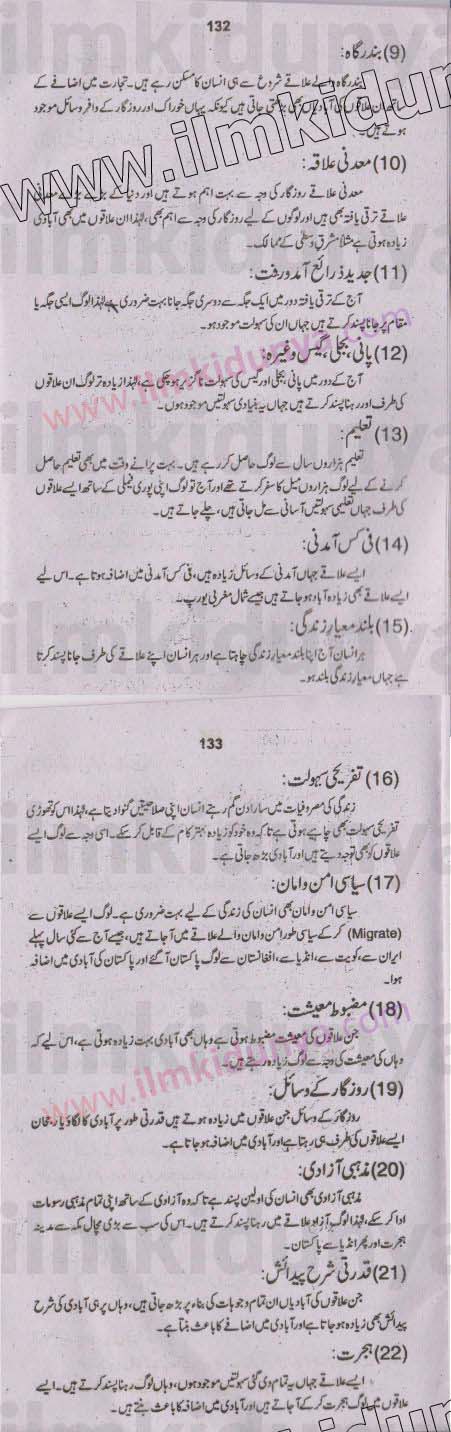 132
(9) بندرگاہ:
بندرگاہ والے علاقے شروع سے ہی انسان کا مسکن رہے ہیں۔ تجارت میں اضافے کے
ساتھ ان علاقوں کی آبادیاں بھی بڑھتی جاتی ہیں کیونکہ یہاں خوراک اور روزگار کے وافر وسائل موجود
ہوتے ہیں۔
(10) معدنی علاقہ:
معدنی علاقے روزگار کی وجہ سے بہت اہم ہوتے ہیں اور دنیا کے بڑے بڑے معدنی
علاقے ترقی یافتہ بھی ہیں اور لوگوں کے لیے روزگار کی وجہ سے اہم بھی، لہٰذا ان علاقوں میں بھی آبادی
زیادہ ہوتی ہے مثلاً مشرقِ وسطٰی کے ممالک۔
(11) جدید ذرائع آمدورفت:
آج کے ترقی یافتہ دور میں ایک جگہ سے دوسری جگہ جانا بہت ضروری ہے لہٰذا لوگ ایسی جگہ یا
مقام پر جانا پسند کرتے ہیں جہاں ان کی سہولت موجود ہو۔
(12) پانی، بجلی، گیس وغیرہ:
آج کے دور میں پانی، بجلی اور گیس کی سہولت ناگزیر ہو چکی ہے، لہٰذا زیادہ تر لوگ ان علاقوں
کی طرف اور رہنا پسند کرتے ہیں جہاں یہ بنیادی سہولتیں موجود ہوں۔
(13) تعلیم:
تعلیم ہزاروں سال سے لوگ حاصل کر رہے ہیں۔ بہت پرانے وقت میں بھی تعلیم حاصل
کرنے کے لیے لوگ ہزاروں میل کا سفر کرتے تھے اور آج تو لوگ اپنی پوری فیملی کے ساتھ ایسے علاقوں
کی طرف جہاں تعلیمی سہولتیں آسانی سے مل جاتی ہیں، چلے جاتے ہیں۔
(14) فی کس آمدنی:
ایسے علاقے جہاں آمدنی کے وسائل زیادہ ہیں، فی کس آمدنی میں اضافہ ہوتا ہے۔ اس لیے
ایسے علاقے بھی زیادہ آباد ہو جاتے ہیں جیسے شمال مغربی یورپ۔
(15) بلند معیارِ زندگی:
ہر انسان آج اپنا بلند معیارِ زندگی چاہتا ہے اور ہر انسان اپنے علاقے کی طرف جانا پسند کرتا
ہے جہاں معیارِ زندگی بلند ہو۔
133
(16) تفریحی سہولت:
زندگی کی مصروفیات میں سارا دن گم رہتے انسان اپنی صلاحیتیں گنوا دیتا ہے، لہٰذا اس کو تھوڑی
تفریحی سہولت بھی چاہیے ہوتی ہے تاکہ وہ خود کو زیادہ بہتر کام کے قابل کر سکے۔ اسی وجہ سے لوگ ایسے
علاقوں کو بھی توجہ دیتے ہیں اور آبادی بڑھ جاتی ہے۔
(17) سیاسی امن و امان:
سیاسی امن و امان بھی انسان کی زندگی کے لیے بہت ضروری ہے۔ لوگ ایسے علاقوں سے
(Migrate) کر کے سیاسی طور امن و امان والے علاقے میں آ جاتے ہیں، جیسے آج سے کئی سال پہلے
ایران سے، کویت سے، انڈیا سے، افغانستان سے لوگ پاکستان آ گئے اور پاکستان کی آبادی میں اضافہ
ہوا۔
(18) مضبوط معیشت:
جن علاقوں کی معیشت مضبوط ہوتی ہے وہاں بھی آبادی بہت زیادہ ہوتی ہے، اس لیے کہ
وہاں کی معیشت کی وجہ سے لوگ زیادہ رہتے ہیں۔
(19) روزگار کے وسائل:
روزگار کے وسائل جن علاقوں میں زیادہ ہوتے ہیں قدرتی طور پر آبادی کا لگاؤ یا رجحان
ایسے علاقوں کی طرف ہی رہتا ہے اور آبادی میں اضافہ ہو جاتا ہے۔
(20) مذہبی آزادی:
مذہبی آزادی بھی انسان کی اولین پسند ہے تاکہ وہ آزادی کے ساتھ اپنی تمام مذہبی رسومات
ادا کر سکے، لہٰذا لوگ آزاد علاقے میں رہنا پسند کرتے ہیں۔ اس کی سب سے بڑی مثال مکہ سے مدینہ
ہجرت اور پھر انڈیا سے پاکستان۔
(21) قدرتی شرح پیدائش:
جن علاقوں کی آبادیاں ان تمام وجوہات کی بناء پر بڑھ جاتی ہیں، وہاں پر ہی آبادی کی شرح
پیدائش بھی زیادہ ہو جاتا ہے اور آبادی میں اضافے کا باعث بنتا ہے۔
(22) ہجرت:
ایسے علاقے جہاں یہ تمام دی گئی سہولتیں موجود ہوں، وہاں لوگ رہنا پسند کرتے ہیں۔ ایسے
علاقوں میں لوگ ہجرت کر کے آ جاتے ہیں اور آبادی میں اضافہ کا باعث بنتے ہیں۔
www.ilmkidunya.com